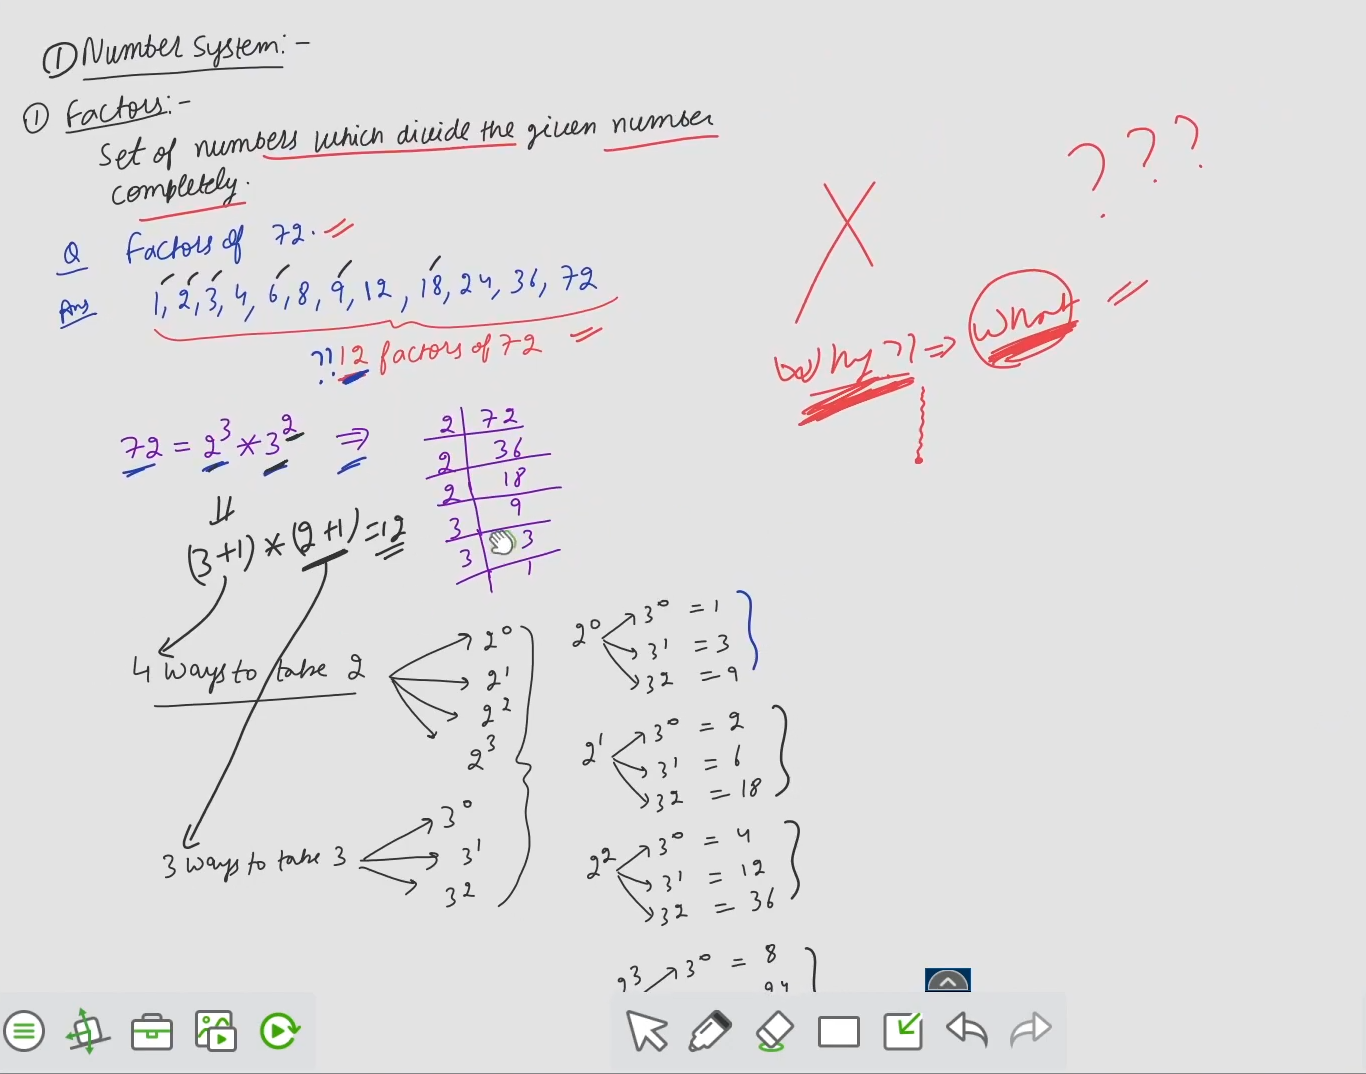 ① Number System:-
① Factors:-
Set of numbers which divide the given number
completely.
Q Factors of 72.
Ans 1, 2, 3, 4, 6, 8, 9, 12, 18, 24, 36, 72
??12 factors of 72
???
Why?? ⇒ What
72 = 2³ * 3² ⇒
(3+1) * (2+1) = 12
2 | 72
2 | 36
2 | 18
3 | 9
3 | 3
1
4 ways to take 2
2⁰
2¹
2²
2³
3 ways to take 3
3⁰
3¹
3²
2⁰ 3⁰ = 1
3¹ = 3
3² = 9
2¹ 3⁰ = 2
3¹ = 6
3² = 18
2² 3⁰ = 4
3¹ = 12
3² = 36
2³ 3⁰ = 8